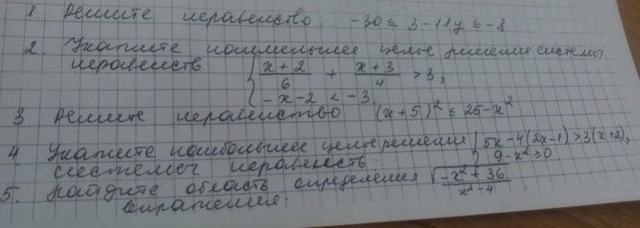 1 Решите неравенство. -30 ≤ 3-11y ≤ -8
2. Укажите наименьшее целое решение системы
неравенств { (x+2)/6 + (x+3)/4 > 3,
-x-2 < -3
3 Решите неравенство (x+5)² ≤ 25-x²
4 Укажите наибольшее целое решение { 5x-4(2x-1) > 3(x+2),
системы неравенств. 9-x² ≥ 0
5. Найдите область определения √((-x²+36)/(x²-4))
выражения.